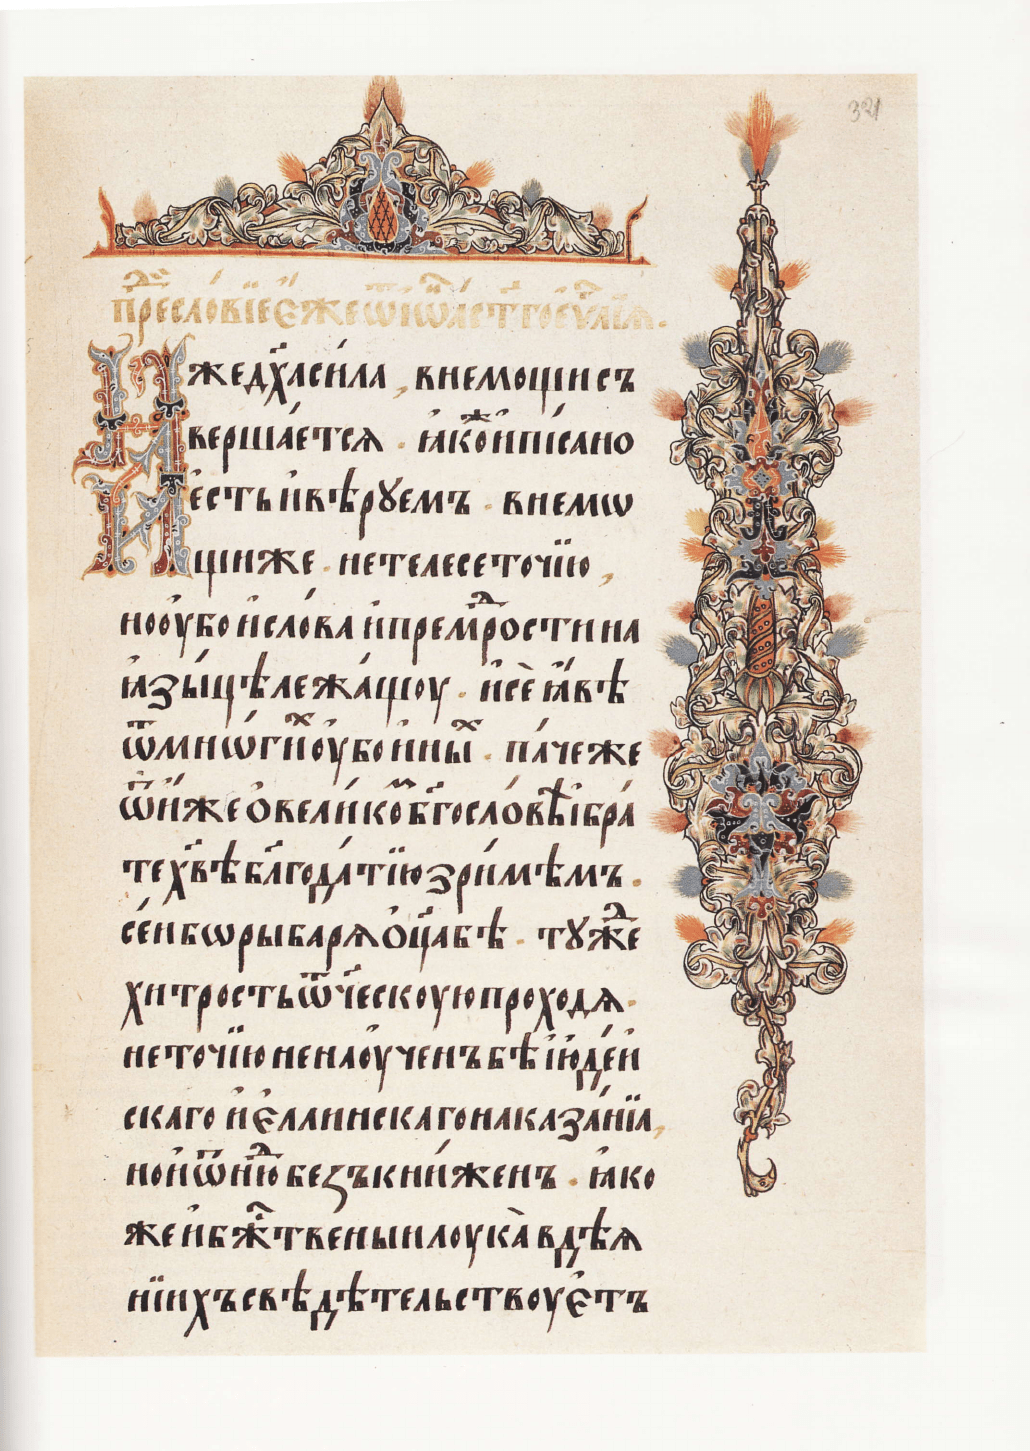 321
Пре́дⷭ҇ловїе є҆́же ѿ і҆ѡа́ст҃гоеѵⷢ҇лїѧ.
И҆́же дх҃а си́ла, в немощи съ
верша́етсѧ. ꙗ҆́коⷤ и҆ пи́сано
є҆сть и҆ вѣ́рꙋемъ. в немѡ
щи же. не телесе то́чїю,
но ѹ҆́бо и҆ сло́ва и҆ премрⷣости на
ꙗ҆зы́цѣ лежа́щоу. и҆ сѐ ꙗ҆́вѣ
ѿ мнѡ́гиⷯ ѹ҆бо и҆ны́ⷯ. па́че же
ѿ ни́хже ѡ҆ вели́коⷨ бг҃осло́вѣ і҆ бра́
те хв҃ѣ блг҃ода́тїю зри́мѣмъ.
се́й бѡ ры́барѧ ѻ҆ц҃а бѣ̀. тꙋ́жⷣе
хи́трость ѿч҃ескоую проходѧ.
не то́чїю ненаоу́ченъ бѣ̀ і҆ю҆де́й
скаго и҆ є҆́ллинскаго наказа́нїа,
но и҆ ѿнюⷣ без̾ъ кни́женъ. ꙗ҆ко
же и҆ бжⷭ҇твеныи лоука̀ в дѣѧ
нїи́хъ свѣдѣтельствоує҆тъ